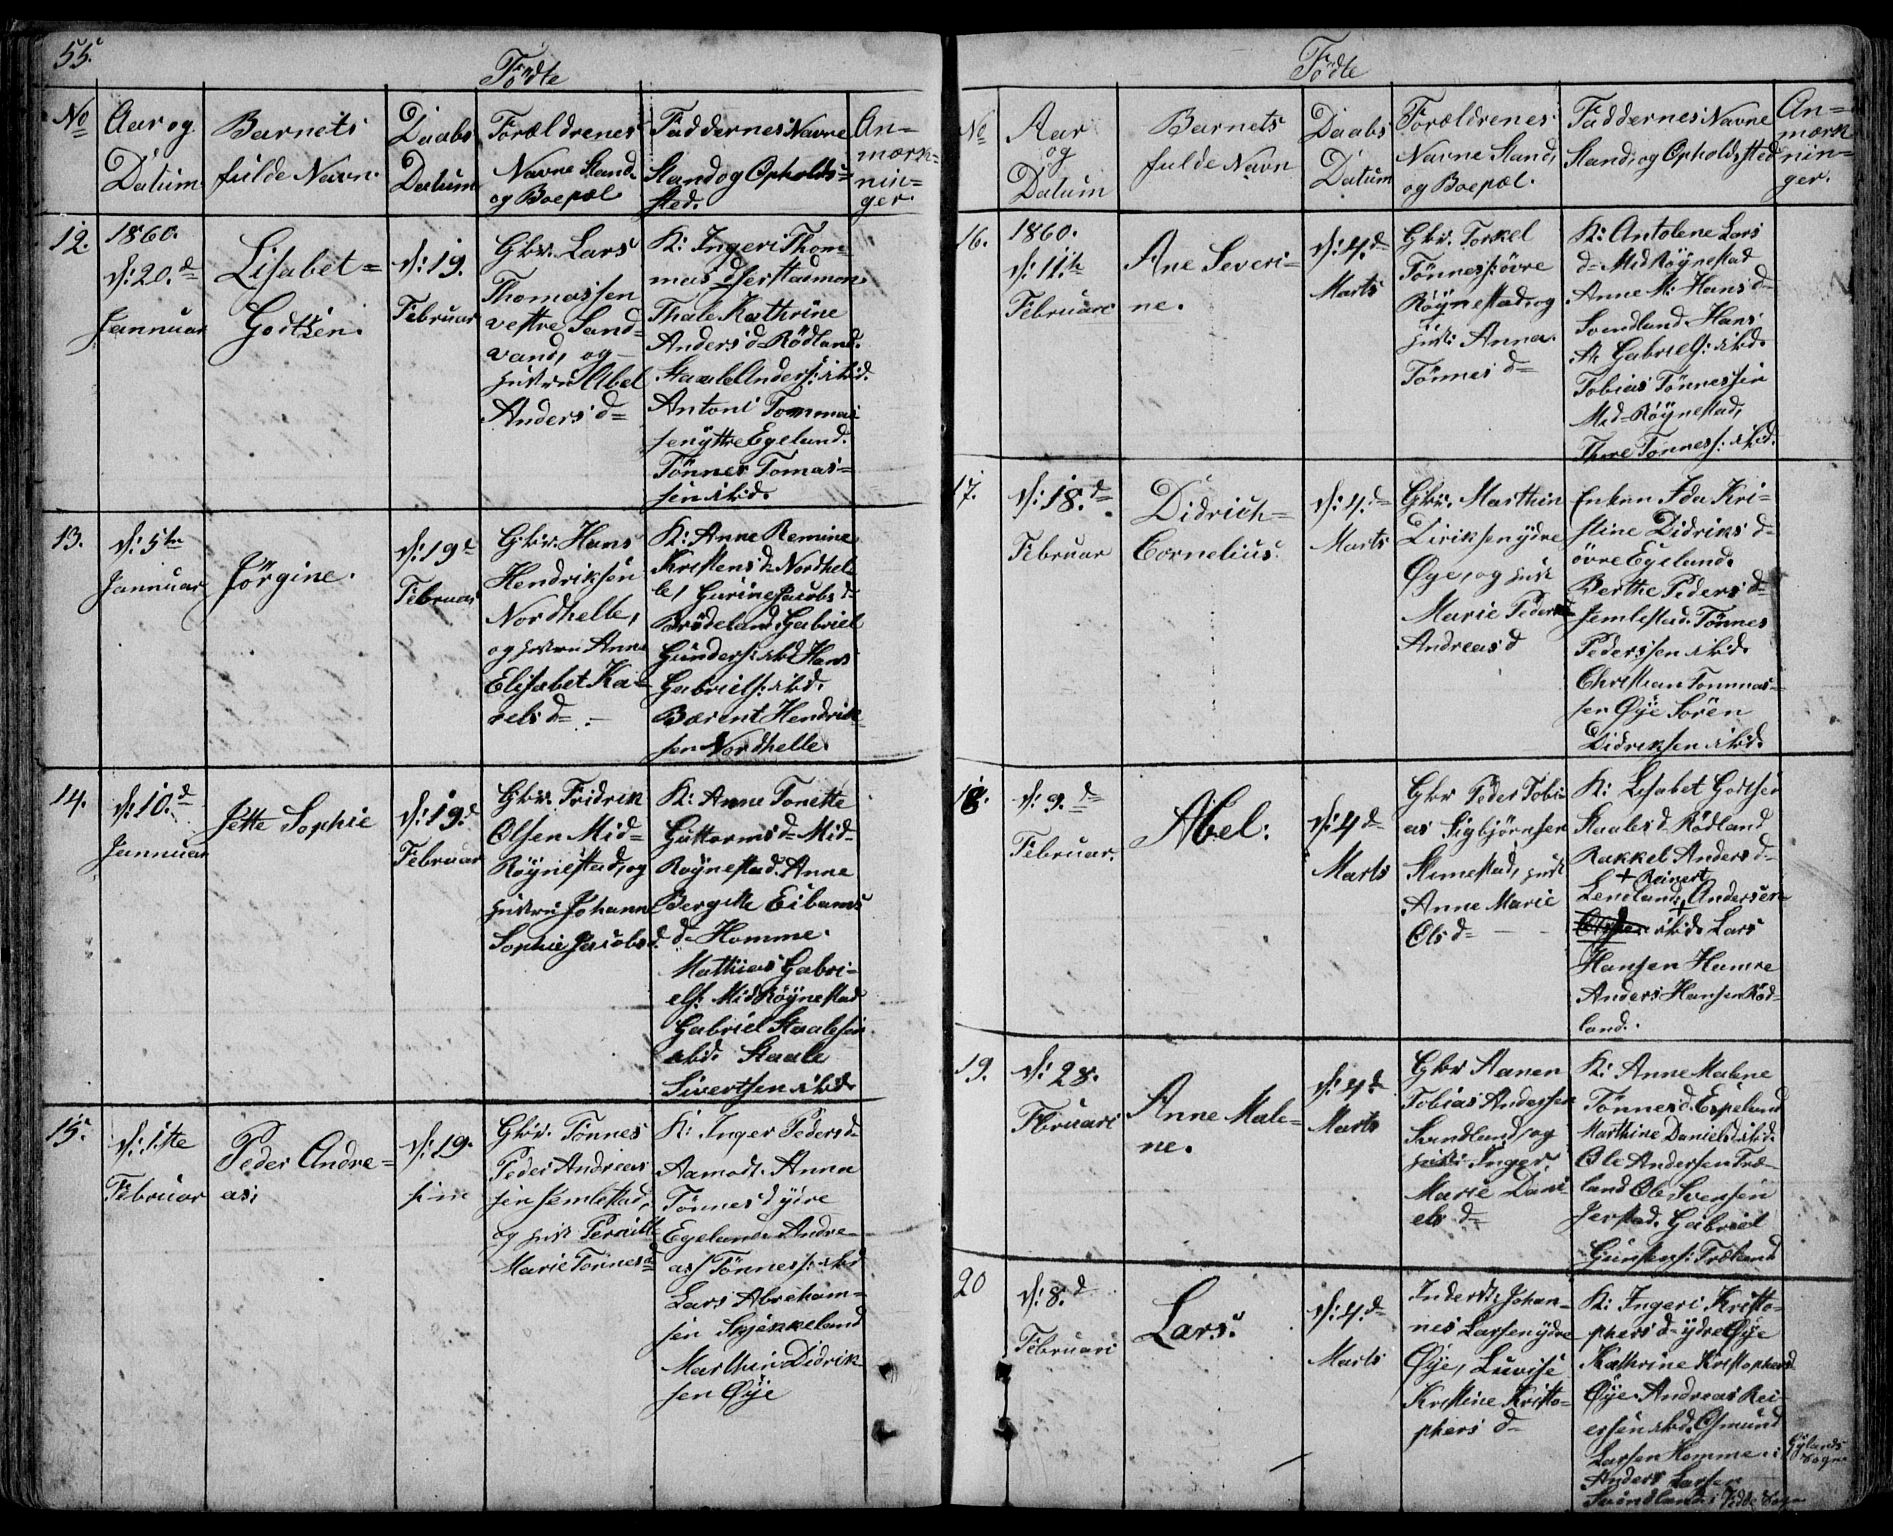 55.
Födte
No
Aar og
Datum
Barnets
fulde Navn.
Daabs
Datum
Forældrenes
Navne Stand
og Boepæl
Faddernes Navne
Stand og Opholds=
sted.
An=
mærk=
nin=
ger.
12.
1860.
d: 20.d
Jannuar
Lisabet=
Godtsen.
d: 19.
Februar
Gbr. Lars
Thomassen
vestre Sand=
vand, og
Hustru Abel
Anders d=
K: Ingeri Thom
mas d
Thale Kathrine
Anders d Rödland.
Staale Anders: ibid.
Antoni Tommas
sen yttre Egeland.
Tönnes Tomas=
sen ibid.
13.
d: 5te
Jannuar
Jörgine.
d: 19d
Februar
Gbr. Hans
Hendriksen
Nordhelle,
og Hustru Anne
Elisabet Ka=
rels d=
K: Anne Remine
Kristens d Nordhel
le, Gurine Jacobs d
Brödeland, Gabriel
Gunders: ibid Hans
Gabriels: ibid.
Barent Hendrik
sen Nordhelle.
14.
d: 10.d
Jannuar
Jette Sophie
d: 19.d
Februar
Gbr. Fridrik
Olsen Mid=
Röynestad, og
Hustru Johanne
Sophie Jacobs d.
K: Anne Tonette
Guttorms d= Mid=
Röynestad. Anne
Bergitte Eibams
d= Homme.
Mathias Gabri=
els: Mid Röynestad
Gabriel Staalesen
ibid. Staale
Sivertsen ibid.
15.
d: 1.tte
Februar
Peder Andre=
as;
d: 19.
sine
Gbr. Tönnes
Peder Andreas
sen Semlestad,
og Hust Pernille
Marie Tönnes d
K: Inger Peders d
Aamodt. Anna
Tönnes d ydre
Egeland. Andre=
as Tönness: ibid
Lars Abraham=
sen Skjekkeland
Marthin Didrik
sen Øye
Födte
No
Aar
og
Datum
Barnets
fulde Navn
Daabs
Datum
Forældrenes
Navne Stand,
og Boepæl.
Faddernes Navne
Stand, og Opholdsted
An=
mærk
nin=
ger.
16.
1860.
d: 11.te
Februari
Ane Severi=
ne.
d: 4.d
Marts
Gbr. Torkel
Tönness: övre
Röynestad, og
Hust: Anna
Tönnes d=
K: Antolene Lars
d= Mid Röynestad
Anne M: Hans d=
Svendland. Hans
A: Gabriels: ibid.
Tobias Tönnessen
Mid=Röynestad,
Thore Tönness: ibid.
17.
d: 18.d
Februar
Didrich=
Cornelius.
d: 4.d
Marts
Gbr. Marthin
Diriksen ydre
Øye, og Hust
Marie Peder
Andreas d
Enken Ida Kri=
stine Didriks d=
övre Egeland.
Berthe Peders d=
Semlestad. Tönnes
Pederssen ibid.
Christian Tommas=
sen Øye Sören
Didriksen ibid.
18.
d: 9.d
Februar.
Abel:
d: 4.d
Marts
Gbr Peder Tobi=
as Sigbjörnsen
Skimestad, Hust
Anne Marie
Ols d=
K: Lisabet Godtsen
Staales d Rödland
Rakkel Anders d=
+ Reinert
Lendland, Andersen
+
ibid. Lars
Hansen Hamre
Anders Hansen Röd=
land.
19.
d: 28.
Februari
Anne Male=
ne.
d: 4.d
Marts
Gbr Aanen
Tobias Andersen
Svindland, og
Hust: Inger
Marie Dani
els d=
K: Anne Malene
Tönnes d. Espeland
Marthine Daniels d ibid.
Ole Andersen Træ=
land Ole Svensen
Jerstad. Gabriel
Gunsens: Træland
20
d: 8.d
Februari
Lars.
d: 4.d
Marts
Inderst: Johan=
nes Larsen ydre
Øye, Luvise
Kristine Kristo=
phers d=
K: Ingeri Kristo=
phers d= ydre Øye
Kathrine Kristophers d
Øye Andreas Rei=
ersen ibid. Osmund
Larsen Homme i
Gylands
Sogn
Anders Larsen
Svindland i Fede Sogn